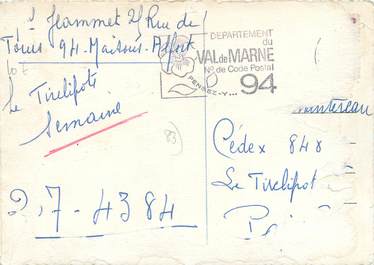 Hammet 21 Rue de
Tours 94-Maisons-Alfort
Le Tirelipote
Semaine
D.7-4384
DEPARTEMENT
du
VAL de MARNE
No de Code Postal
94
PENSEZ-Y...
83
Cédex 848
Le Tirelipot